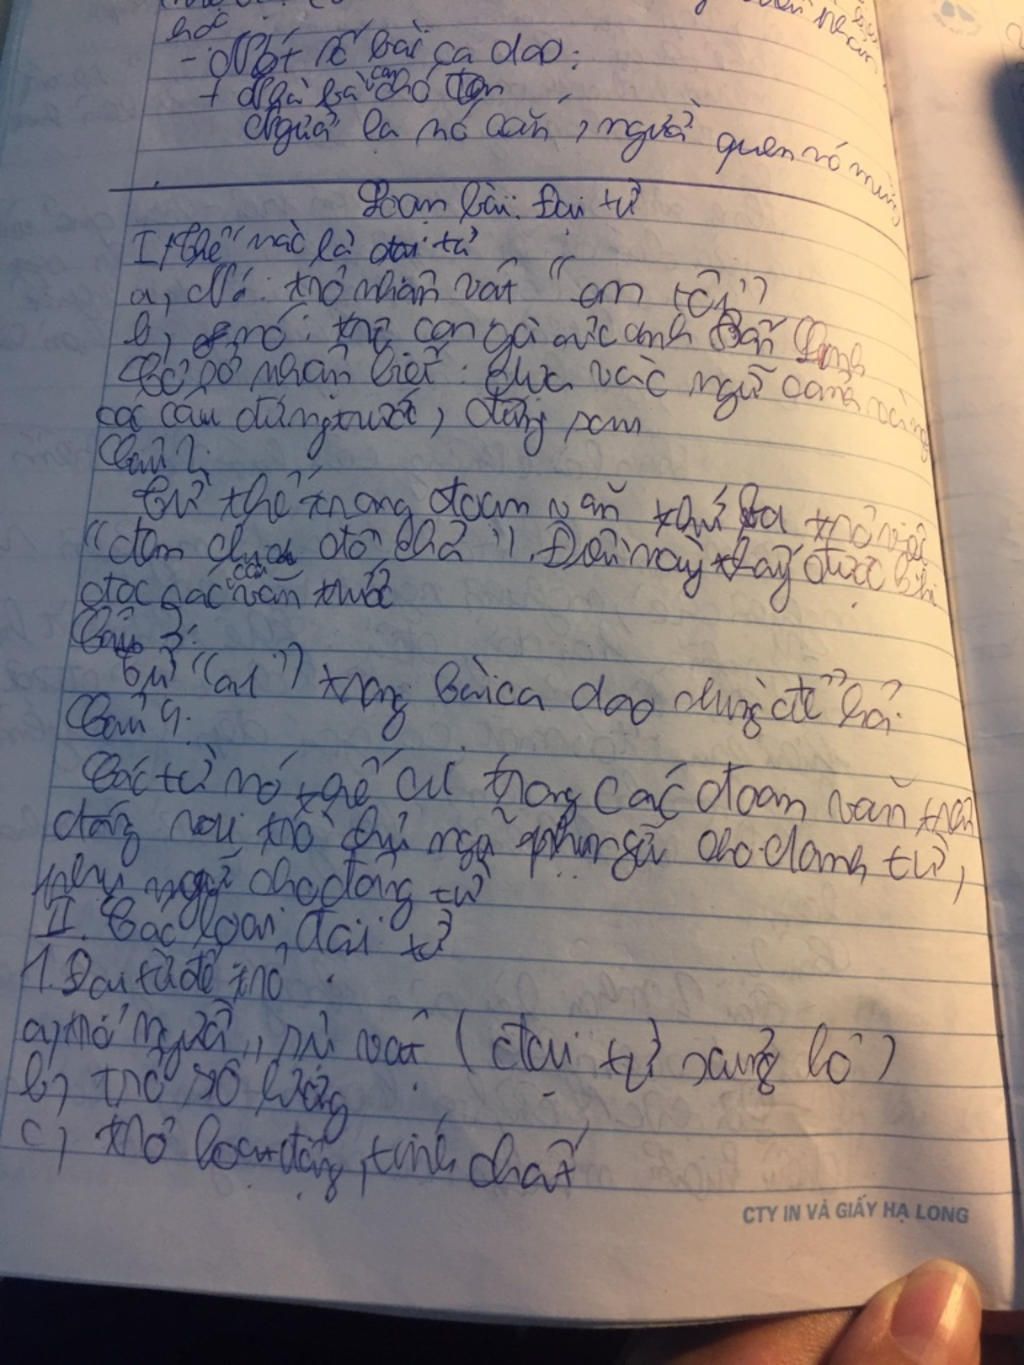 học
- Một số bài ca dao:
+ Nhà bà có con chó đen
Người lạ nó cắn, người quen nó mừng
Soạn bài: Đại từ
I, thế nào là đại từ
a, Nó: trỏ nhân vật "em tôi"
b, nó: trỏ con gà của anh Bốn Linh
Cơ sở nhận biết: Dựa vào ngữ cảnh và
các câu đứng trước, đứng sau
Câu 2:
Từ thế trong đoạn văn thứ ba trỏ việc
"đem chia đồ chơi". Điều này thấy được khi
đọc các câu văn trước
Câu 3:
Từ "ai" trong bài ca dao dùng để hỏi.
Câu 4:
Các từ nó, thế, ai trong các đoạn văn trên
đóng vai trò chủ ngữ, phụ ngữ cho danh từ,
phụ ngữ cho động từ
II. Các loại đại từ
1. Đại từ để trỏ
a, trỏ người, sự vật (đại từ xưng hô)
b, trỏ số lượng
c, trỏ hoạt động, tính chất
CTY IN VÀ GIẤY HẠ LONG